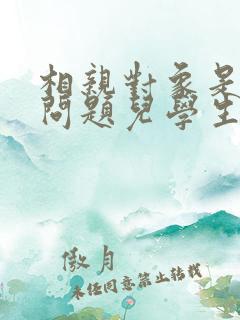 相親對象是
問題兒學生
傲月
未經同意禁止轉載